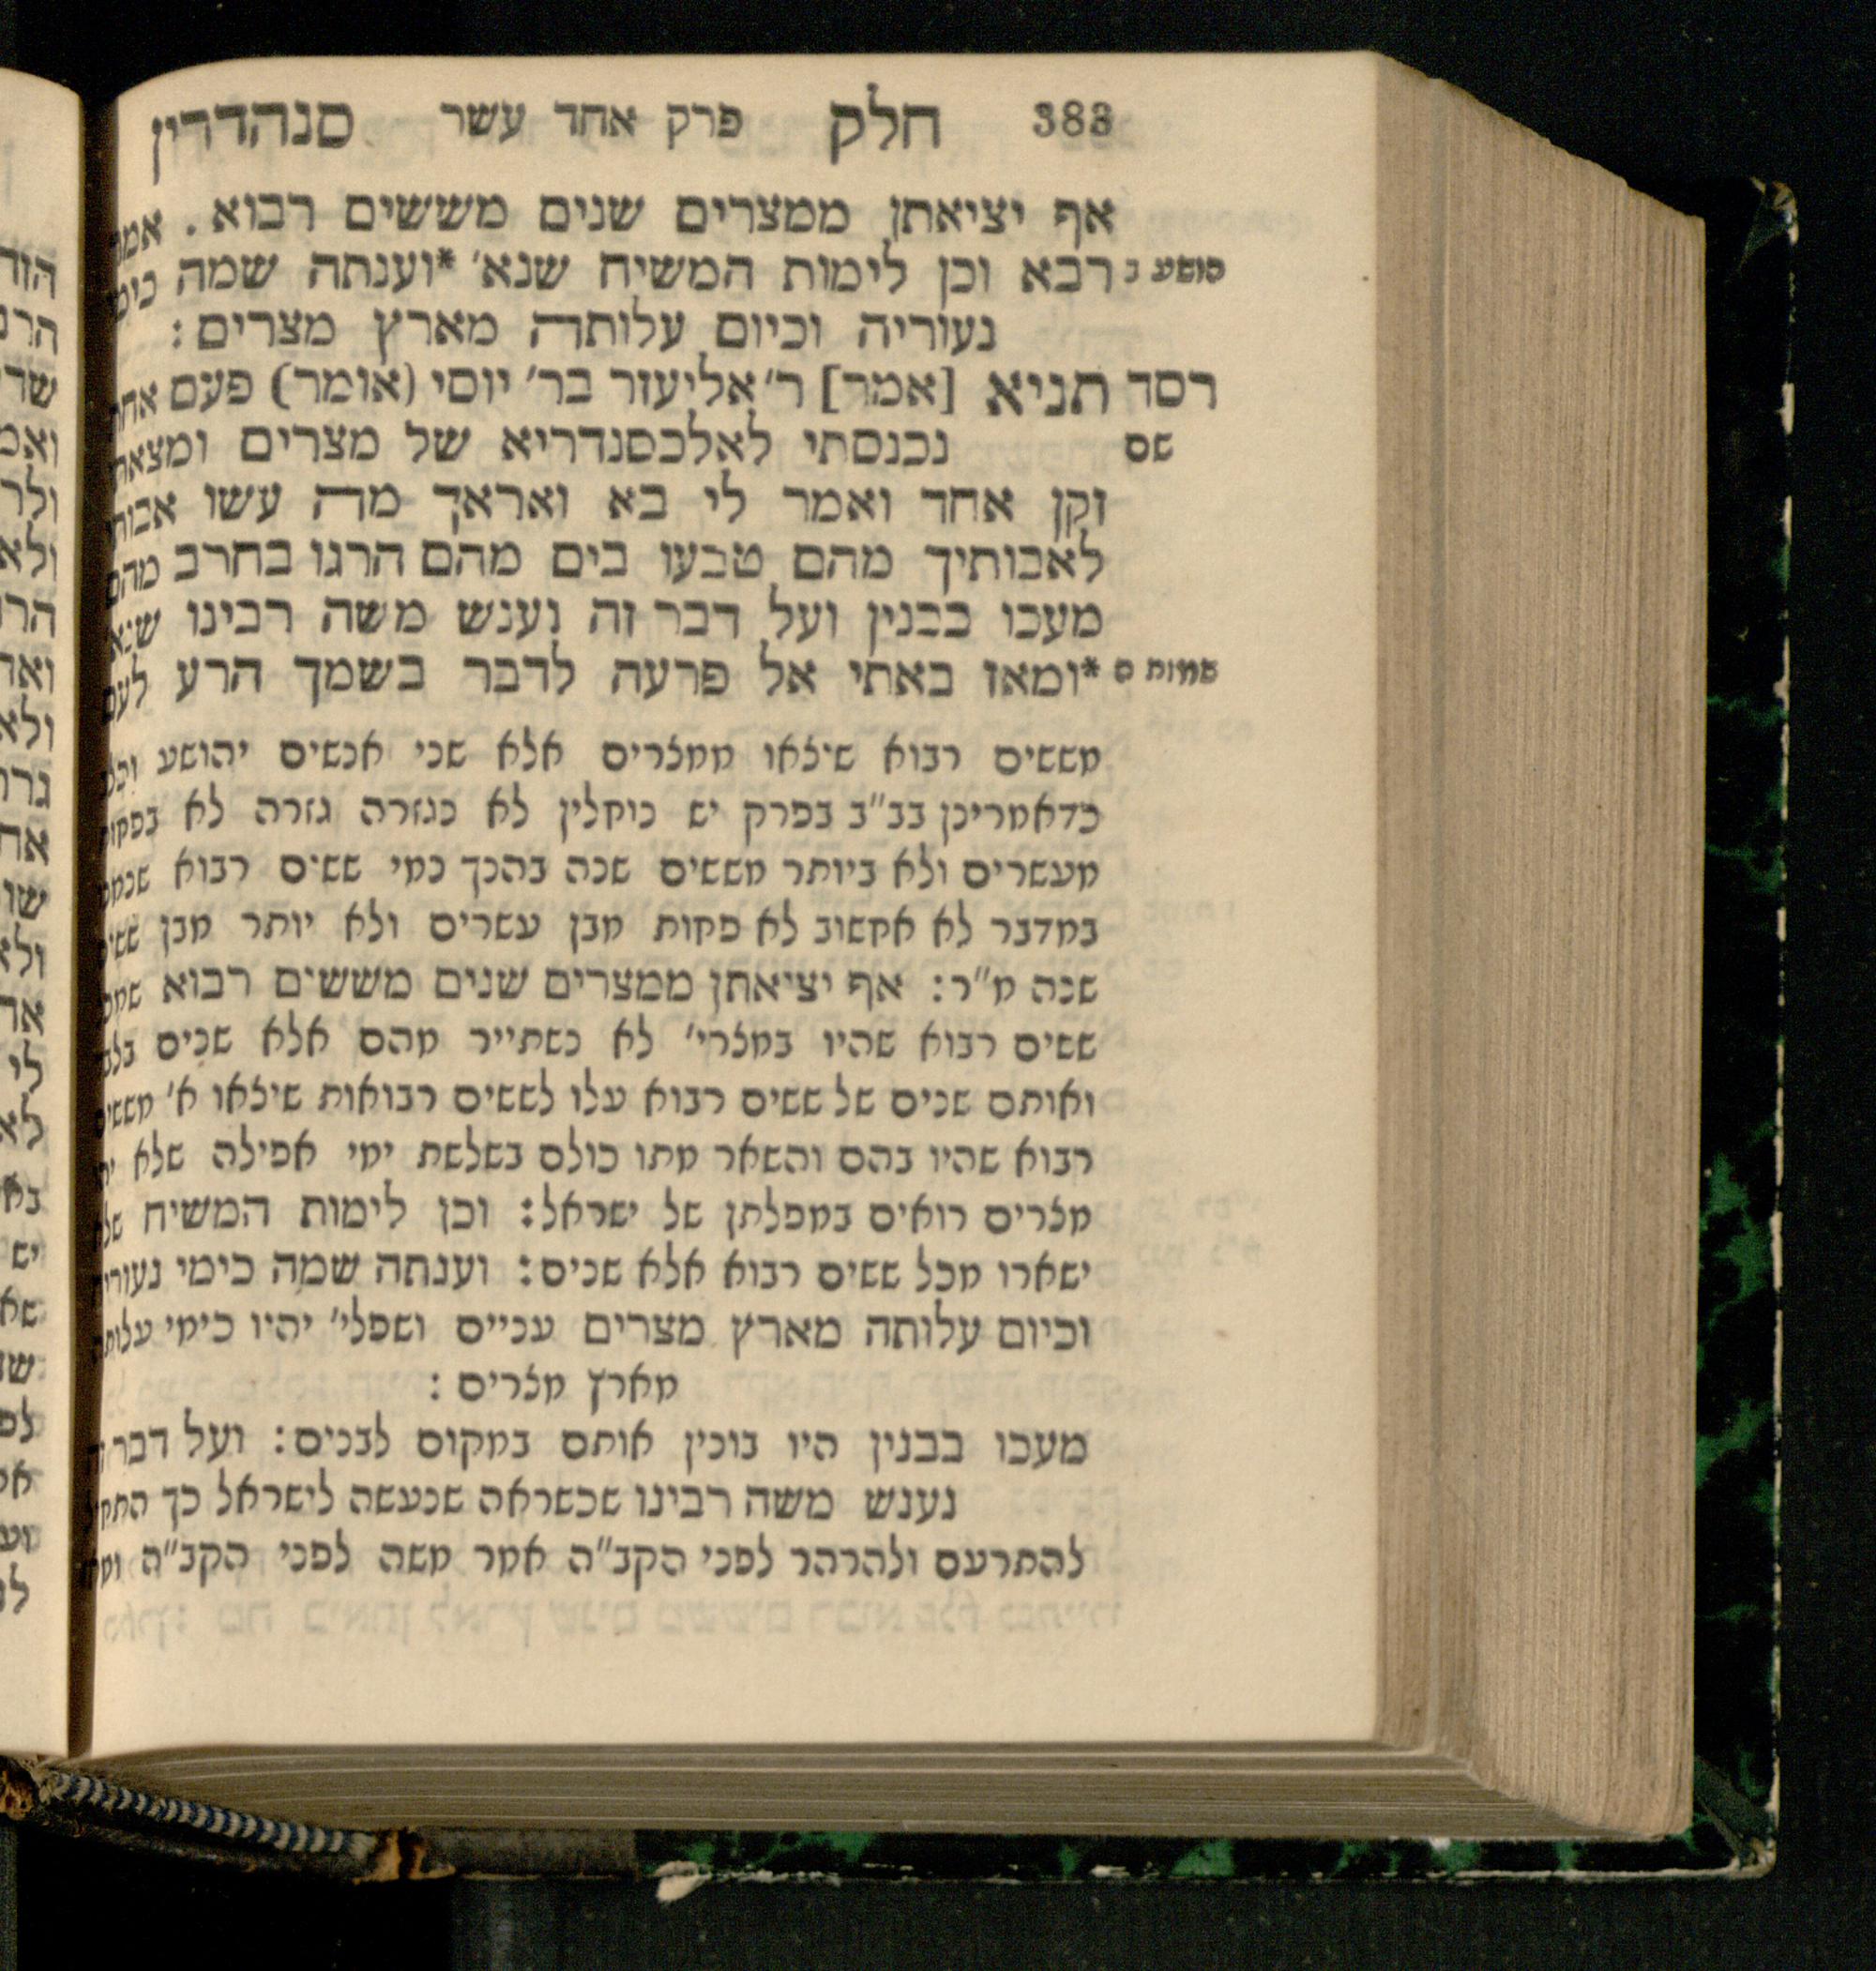 383 חלק פרק אחד עשר סנהדרין
אף יציאתן ממצרים שנים מששים רבוא . אמר
הושע ב רבא וכן לימות המשיח שנא׳ *וענתה שמה כימי
נעוריה וכיום עלותה מארץ מצרים :
רסד תניא [אמר] ר׳ אליעזר בר׳ יוסי (אומר) פעם אחת
שם נכנסתי לאלכסנדריא של מצרים ומצאתי
זקן אחד ואמר לי בא ואראך מה עשו אבותי
לאבותיך מהם טבעו בים מהם הרגו בחרב מהם
מעכו בבנין ועל דבר זה נענש משה רבינו שנא
שמות ה *ומאז באתי אל פרעה לדבר בשמך הרע לעם
מששים רבוא שיצאו ממצרים אלא שני אנשים יהושע וכלב
כדאמרינן בב״ב בפרק יש נוחלין לא נגזרה גזרה לא בפחות
מעשרים ולא ביותר מששים שנה בהנך כמי ששים רבוא שנמנו
במדבר לא אקשוב לא פחות מבן עשרים ולא יותר מבן ששים
שנה מ״ר : אף יציאתן ממצרים שנים מששים רבוא שמם
ששים רבוא שהיו במצרי׳ לא נשתייר מהם אלא שנים בלבד
ואותם שנים של ששים רבוא עלו לששים רבואות שיצאו א׳ מששים
רבוא שהיו בהם והשאר מתו כולם בשלשת ימי אפילה שלא יהו
מצרים רואים במפלתן של ישראל : וכן לימות המשיח שלא
ישארו מכל ששים רבוא אלא שנים : וענתה שמה כימי נעוריה
וכיום עלותה מארץ מצרים ענייס ושפלי׳ יהיו כימי עלותה
מארץ מצרים :
מעכו בבנין היו בונין אותם במקום לבנים : ועל דבר זה
נענש משה רבינו שכשראה שנעשה לישראל כך התחיל
להתרעם ולהרהר לפני הקב״ה אמר משה לפני הקב״ה